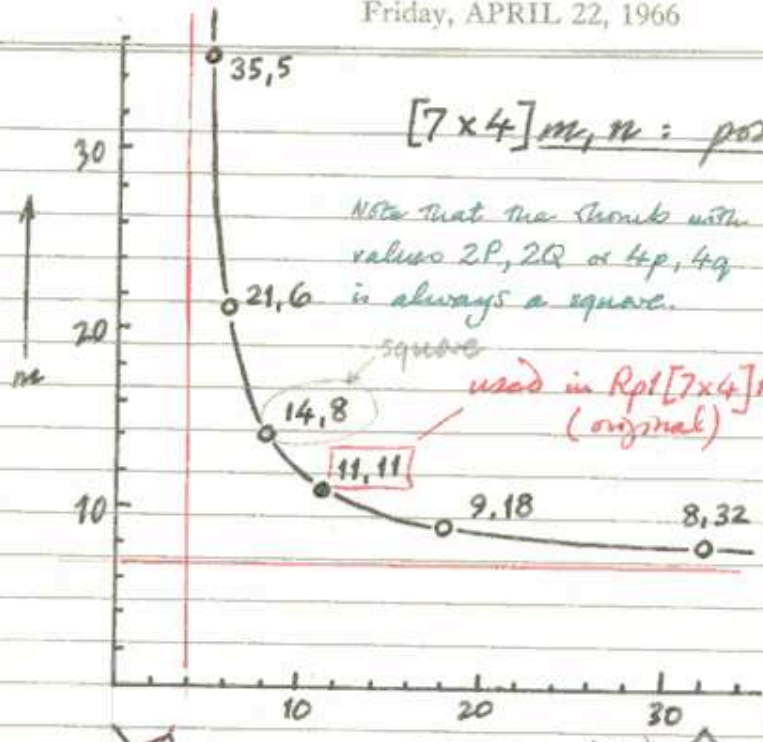 Friday, APRIL 22, 1966
35,5
[7×4] m, n :
30
Note that the rhomb with
values 2P, 2Q or 4p, 4q
21,6
is always a square.
20
square
m
used in Rpt [7×4]
14,8
(original)
11,11
10
9,18
8,32
10
20
30